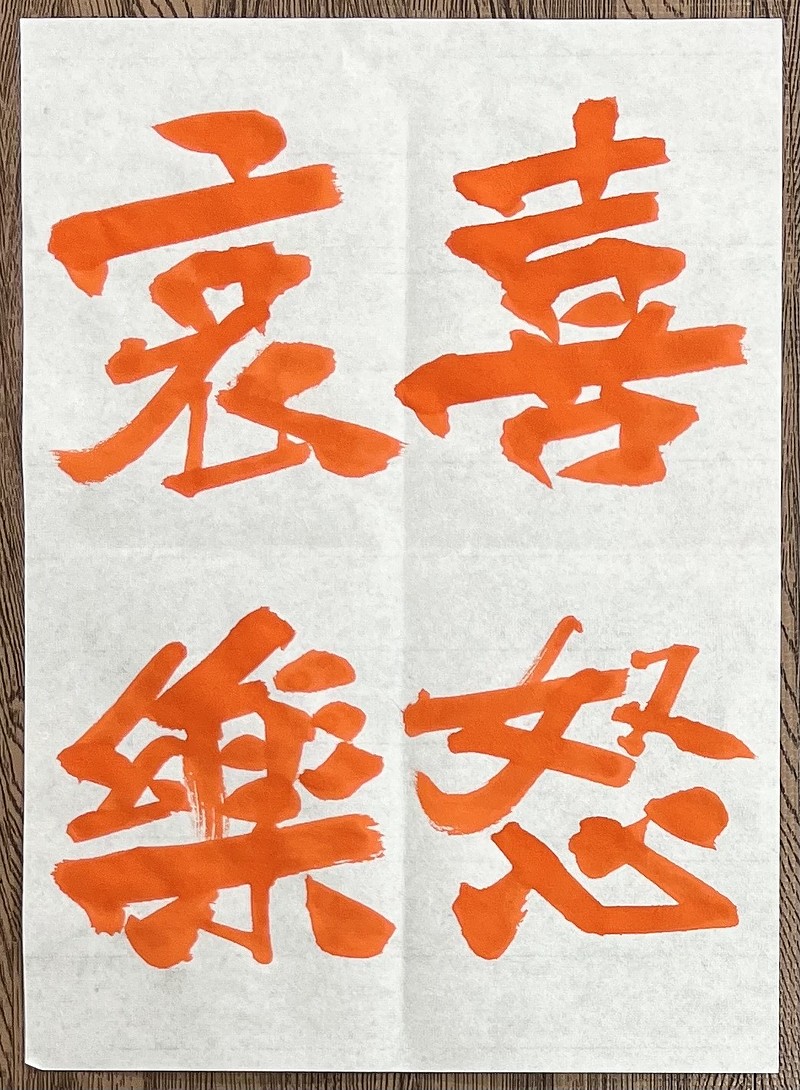 喜怒
哀樂